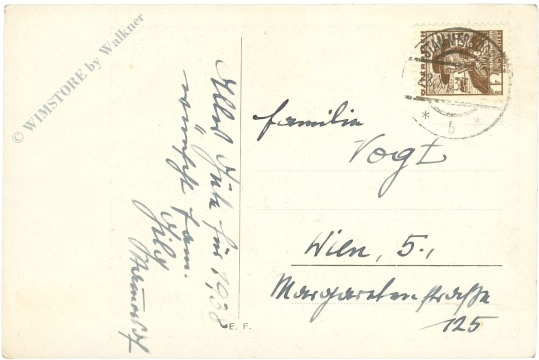 © WIMSTORE by Walkner
Alles Gute für 1938
wünscht Fam.
12
* b *
Familie
Vogt
Wien, 5.,
Margaretenstraße
125
E. F.